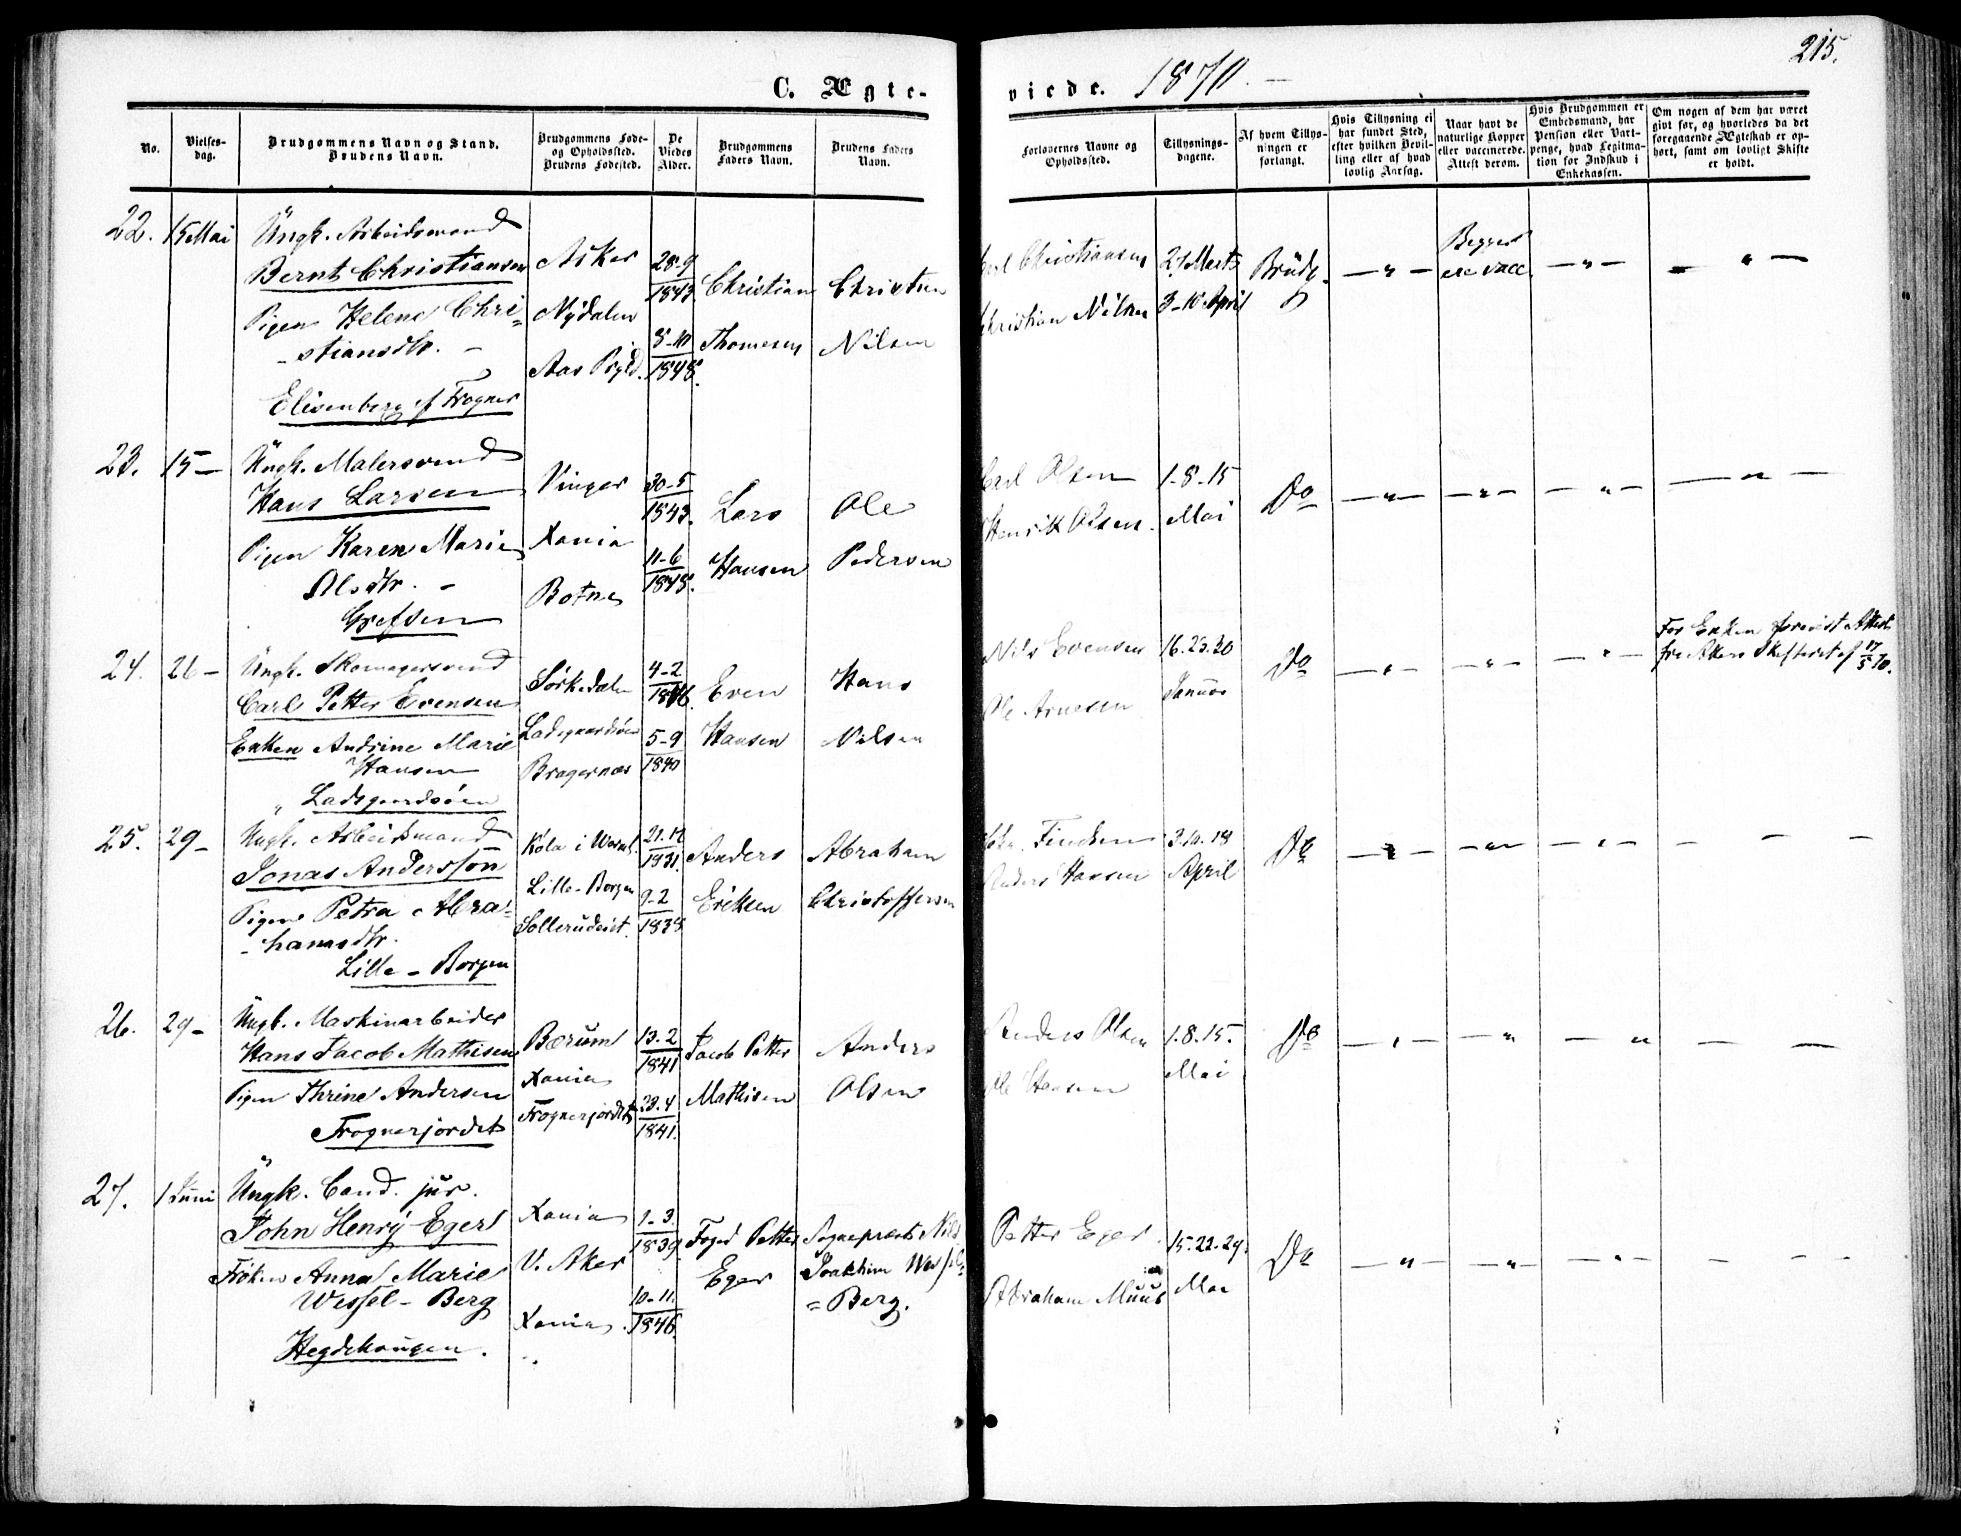 215.
C. Ægte-
viede. 1870.
No.
Vielses-
dag.
Brudgommens Navn og Stand.
Brudens Navn.
Brudgommens Føde-
og Opholdssted.
Brudens Fødested.
De
Viedes
Alder.
Brudgommens
Faders Navn.
Brudens Faders
Navn.
Forlovernes Navne og
Opholdssted.
Tillysnings-
dagene.
Af hvem Tillys-
ningen er
forlangt.
Hvis Tillysning ei
har fundet Sted,
efter hvilken Bevil-
ling eller af hvad
lovlig Aarsag.
Naar havt de
naturlige Kopper
eller vaccinerede.
Attest derom.
Hvis Brudgommen er
Embedsmand, har
Pension eller Vart-
penge, hvad Legitma-
tion for Indskud i
Enkekassen.
Om nogen af dem har været
givt før, og hvorledes da det
foregaaende Ægteskab er op-
hørt, samt om lovligt Skifte
er holdt.
22. 15 Mai
Ungk. Arbeidsmand
Bernt Christiansen
Pigen Helene Chri-
stiansdtr. -
Elisenberg af Frogner
Asker
Nydalen
Aas Pgld.
28-9
1843
8-10
1848.
Christian
Thomesen
Christen
Nilsen
Carl Christiansen
Christian Nilsen
27 Marts
3-10 April
Brudg.
- " -
Begge
ere vacc.
- " -
- " -
23. 15 -
Ungk. Malersvend
Hans Larsen
Pigen Karen Marie
Olsdtr. -
Grefsen
Vinger
Xania
Botne
30-5
1843.
11-6
1848.
Lars
Hansen
Ole
Pedersen
Carl Olsen
Henrik Olsen.
1-8-15
Mai
Do
- " -
- " -
- " -
- " -
24. 26 -
Ungk. Skomagersvend
Carl Petter Evensen
Enken Andrine Marie
Hansen
" Ladegaardsøen
Sørkedalen
Ladegaardsøen
Bragernæs
4-2
1846.
5-9
1840
Even
Hansen
Hans
Nilsen
Nils Evensen
Ole Arnesen
16. 23. 30
Januar
Do
- " -
- " -
- " -
For Enken forevist Attest
fra Akers Skifteret af 17/5 70.
25. 29 -
Ungk. Arbeidsmand
Jonas Andersson
Pigen Petra Abra-
hamsdtr.
Lille - Borgen
Köla i Werml.
Lille-Borgen
Sollerudeiet.
21.12
1831.
9-2
1838
Anders
Eriksen
Abraham
Christoffersen
Anders Hansen
3. 10. 18
April
Do
- " -
- " -
- " -
- - -
26. 29 -
Ungk. Maskinarbeider
Hans Jacob Mathisen
Pigen Thrine Andersen
Frognerjordet
Bærum
Xania
Frognerjordet
13-2
1841
23.4
1841.
Jacob Petter
Mathisen
Anders
Olsen
Anders Olsen
Ole Hansen
1. 8. 15.
Mai
Do
- " -
- " -
- "
- -
27. 1 Juni
Ungk. Cand. jur.
John Henry Eger
Frøken Anna Marie
Wessel - Berg
Hegdehaugen.
Xania
V. Aker
Xania.
1-3.
1839.
10-11.
1846.
Foged Petter
Eger
Sognepræst Nils
Joakhim Wessel-
= Berg.
Petter Eger.
Abraham Muus
15. 22. 29.
Mai
Do
- " -
- " -
- " -
- " -